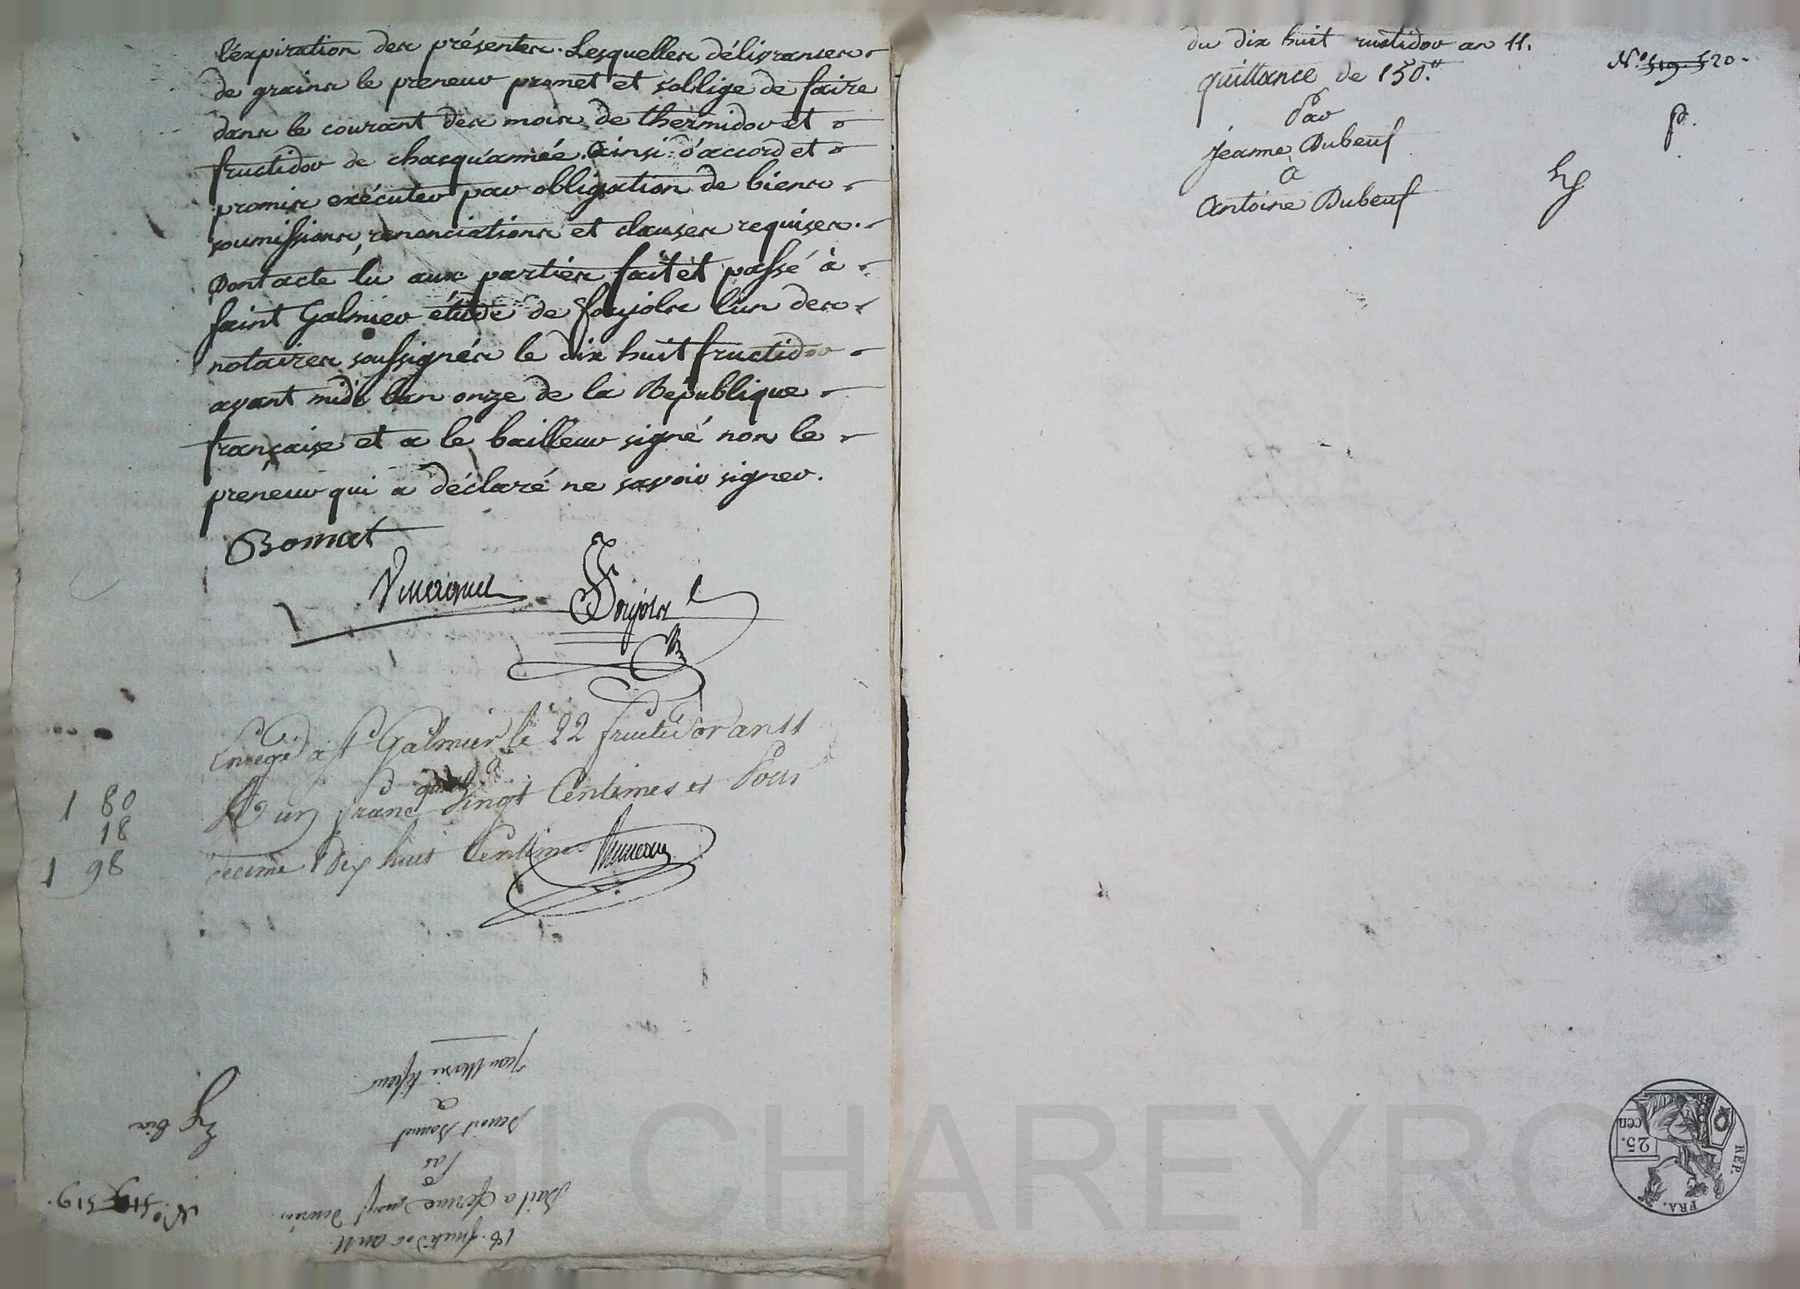 l'expiration des présentes. Lesquelles délivrances
de grains le preneur promet et s'oblige de faire
dans le courant des mois de thermidor et
fructidor de chaqu'année. Ainsi d'accord et
promis exécuter par obligation de biens
soumissions, renonciations et clauses requises.
Dont acte lu aux parties fait et passé à
Saint Galmier étude de Foujols l'un des
notaires soussignés le dix huit fructidor
avant midi l'an onze de la République
française et a le bailleur signé non le
preneur qui a déclaré ne savoir signer.
Bonnet
Foujols
Enregé à St Galmier le 22 fructidor an 11
1 80
R un franc quatre Vingt Centimes et Pour
18
1 98
décime Dix huit Centimes
18. fructidor an 11
Bail a ferme
Par
Benoit Bonnet
a
Jean Marie
N° 519 519.
du dix huit ructidor an 11.
N° 519 520.
quittance de 150.tt
Par
Jeanne Dubeuf
à
Antoine Dubeuf
REP. FRA.
25. cen
SOL CHAREYRON